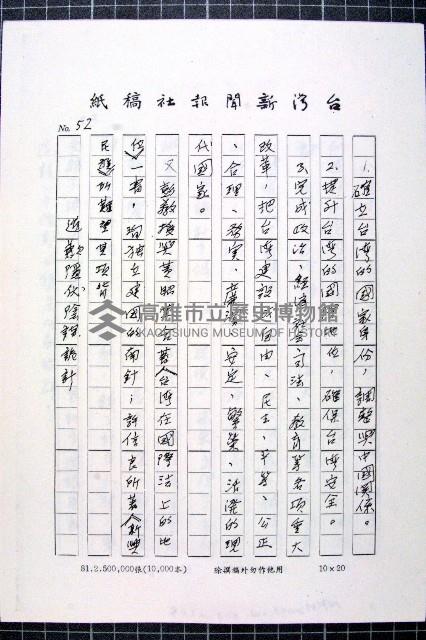 台灣新聞報社稿紙
No. 52
1.確立台灣的國家身份，調整與中國關係。
2.提升台灣的國地位，確保台灣安全。
3.完成政治、經濟、司法、教育等各項重大
改革，把台灣建設成自由、民主、平等、公正
、合理、務實、安定、繁榮、活潑的現
代國家。
又彭教授與黃昭堂合著「台灣在國際法上的地
位」一書，獨立建國的南針；許信良所著「新興
民族」所難望其項背
高雄市立歷史博物館
KAOHSIUNG MUSEUM OF HISTORY
81.2.500,000張(10,000本)
除撰稿外勿作他用
10×20